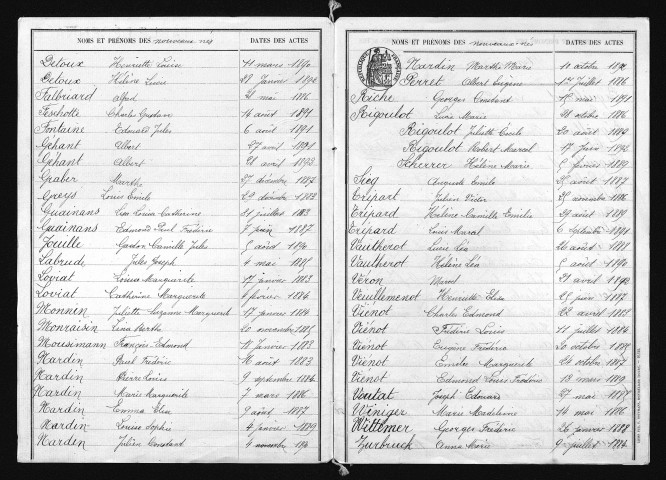 NOMS ET PRÉNOMS DES nouveaux nés DATES DES ACTES
Deloux Henriette Louise 11 mars 1890
Deloux Hélène Lucie 28 Janvier 1892
Falbriard Alfred mai 1886
Feschotte Charles Gustave 16 août 1891
Fontaine Edouard Jules 6 août 1891
Géhant Albert 27 avril 1891
Géhant Albert 21 avril 1893
Graber Marthe 27 décembre 1892
Louis Emile 29 décembre 1882
Guainans Louisa Catherine 21 juillet 1883
Guainans Edmond Paul Frédéric Juin 1887
Jouille Gaston Camille Jules août 1890
Labrude Jules Joseph 4 mai 1885
Loviat Louisa Marguerite 17 janvier 1883
Loviat Catherine Marguerite 4 février 1886
Monnin Juliette Suzanne Marguerite 17 janvier 1884
Monraisin Lina Berthe 20 novembre 1885
Mousimann François Edmond 18 janvier 1882
Nardin Paul Frédéric 16 août 1883
Nardin Pierre Louis 9 septembre 1884
Nardin Marie Marguerite 7 mars 1886
Nardin Emma Elise 9 août 1887
Nardin Louise Sophie 4 janvier 1889
Nardin Julien Constant 4 novembre 1890
NOMS ET PRÉNOMS DES nouveaux-nés DATES DES ACTES
Nardin Marthe Marie 10 octobre 1892
Perret Albert Eugène 17 juillet 1886
Riche Georges Constant 15 mai 1891
Rigoulot Louis Marie 21 octobre 1886
Rigoulot Juliette Cécile 20 août 1889
Rigoulot Robert Marcel 17 juin 1892
Scherrer Hélène Marie 5 février 1889
Sieg Auguste Emile 25 août 1887
Tripart Julien Victor 25 novembre 1886
Tripard Hélène Camille Emilie 29 août 1889
Tripard Louis Marcel 6 septembre 1891
Vautherot Lucie Léa 26 août 1888
Vautherot Hélène Léa 5 août 1890
Véron Marcel 21 avril 1892
Veuillemenot Henriette Elise 25 juin 1887
Viénot Charles Edmond 22 avril 1883
Viénot Frédéric Louis 11 juillet 1884
Viénot Eugène Frédéric 20 octobre 1885
Viénot Emilie Marguerite 24 octobre 1887
Viénot Edmond Louis Frédéric 13 mars 1889
Voulat Joseph Edouard 27 mai 1887
Winiger Marie Madeleine 14 mai 1886
Wittmer Georges Frédéric 26 janvier 1888
Zurbruck Anna Marie 9 juillet 1884